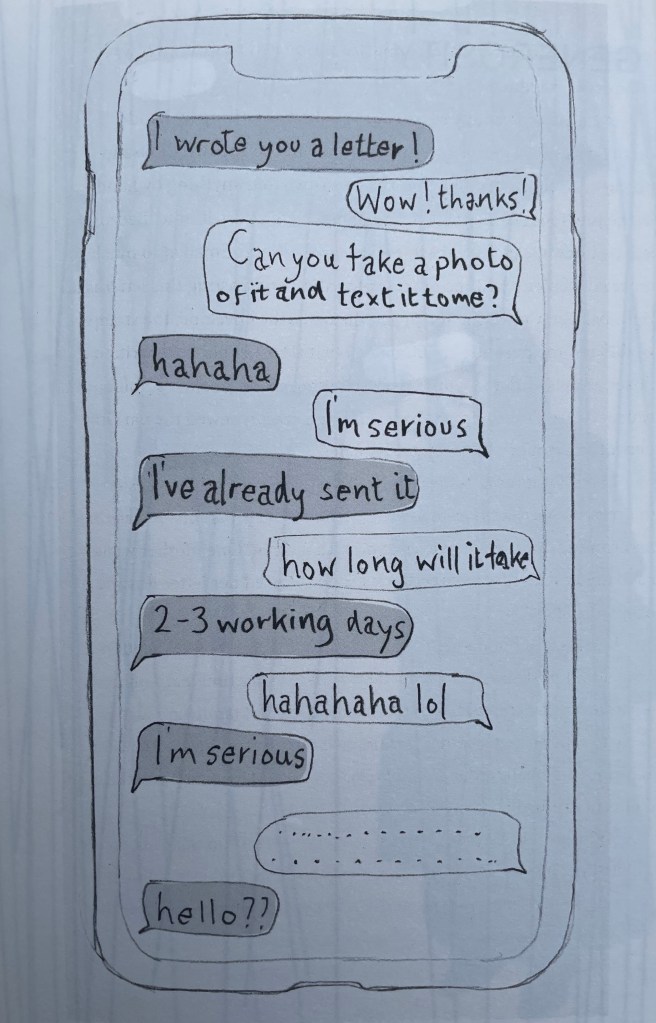 I wrote you a letter!
Wow! thanks!
Can you take a photo
of it and text it to me?
hahaha
I'm serious
I've already sent it
how long will it take
2-3 working days
hahahaha lol
I'm serious
hello??